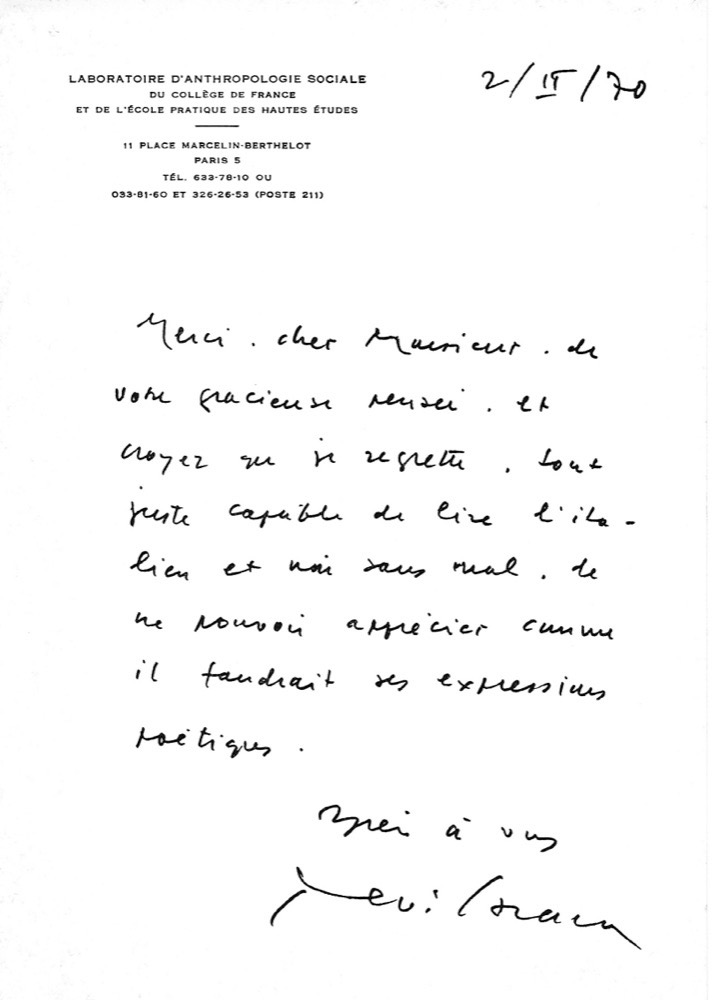 LABORATOIRE D'ANTHROPOLOGIE SOCIALE
DU COLLÈGE DE FRANCE
ET DE L'ÉCOLE PRATIQUE DES HAUTES ÉTUDES
11 PLACE MARCELIN-BERTHELOT
PARIS 5
TÉL. 633-78-10 OU
033-81-60 ET 326-26-53 (POSTE 211)
2/IV/70
Merci, cher Monsieur, de
votre gracieuse pensée, et
croyez que je regrette, tout
juste capable de lire l'ita-
lien et non sans mal, de
ne pouvoir apprécier comme
il faudrait ses expressions
poétiques.
à vous
Lévi Strauss